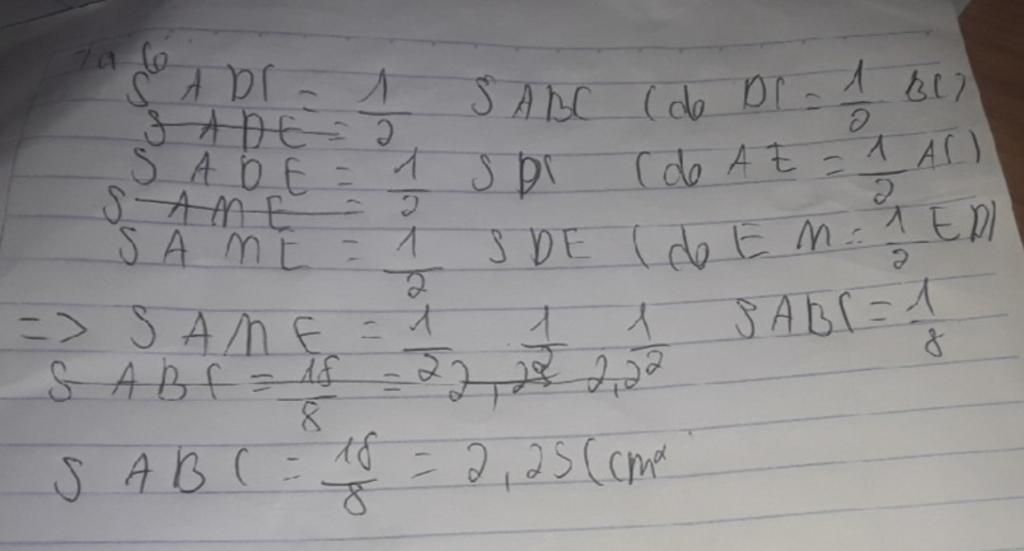 Ta có
S ADC = 1/2 S ABC (do DC = 1/2 BC)
S ADE =
S ADE = 1/2 S DC (do AE = 1/2 AC)
S AME =
S AME = 1/2 S DE (do EM = 1/2 ED)
=> S AME = 1/2 1/2 1/2 S ABC = 1/8
S ABC = 18/8 = 2,28 2,2
S ABC = 18/8 = 2,25 (cm²